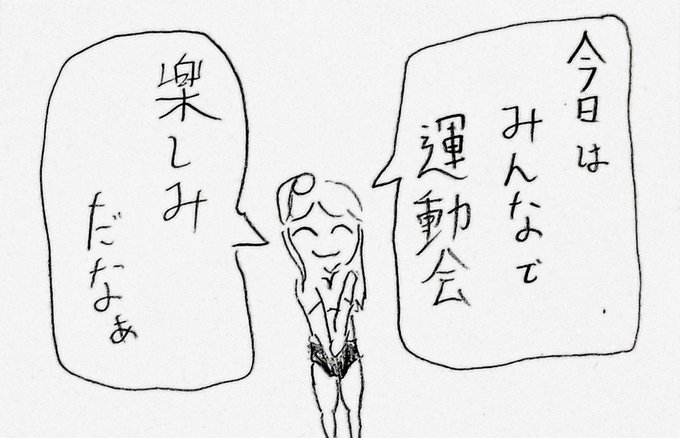 今日は
みんなで
運動会
楽しみ
だなぁ